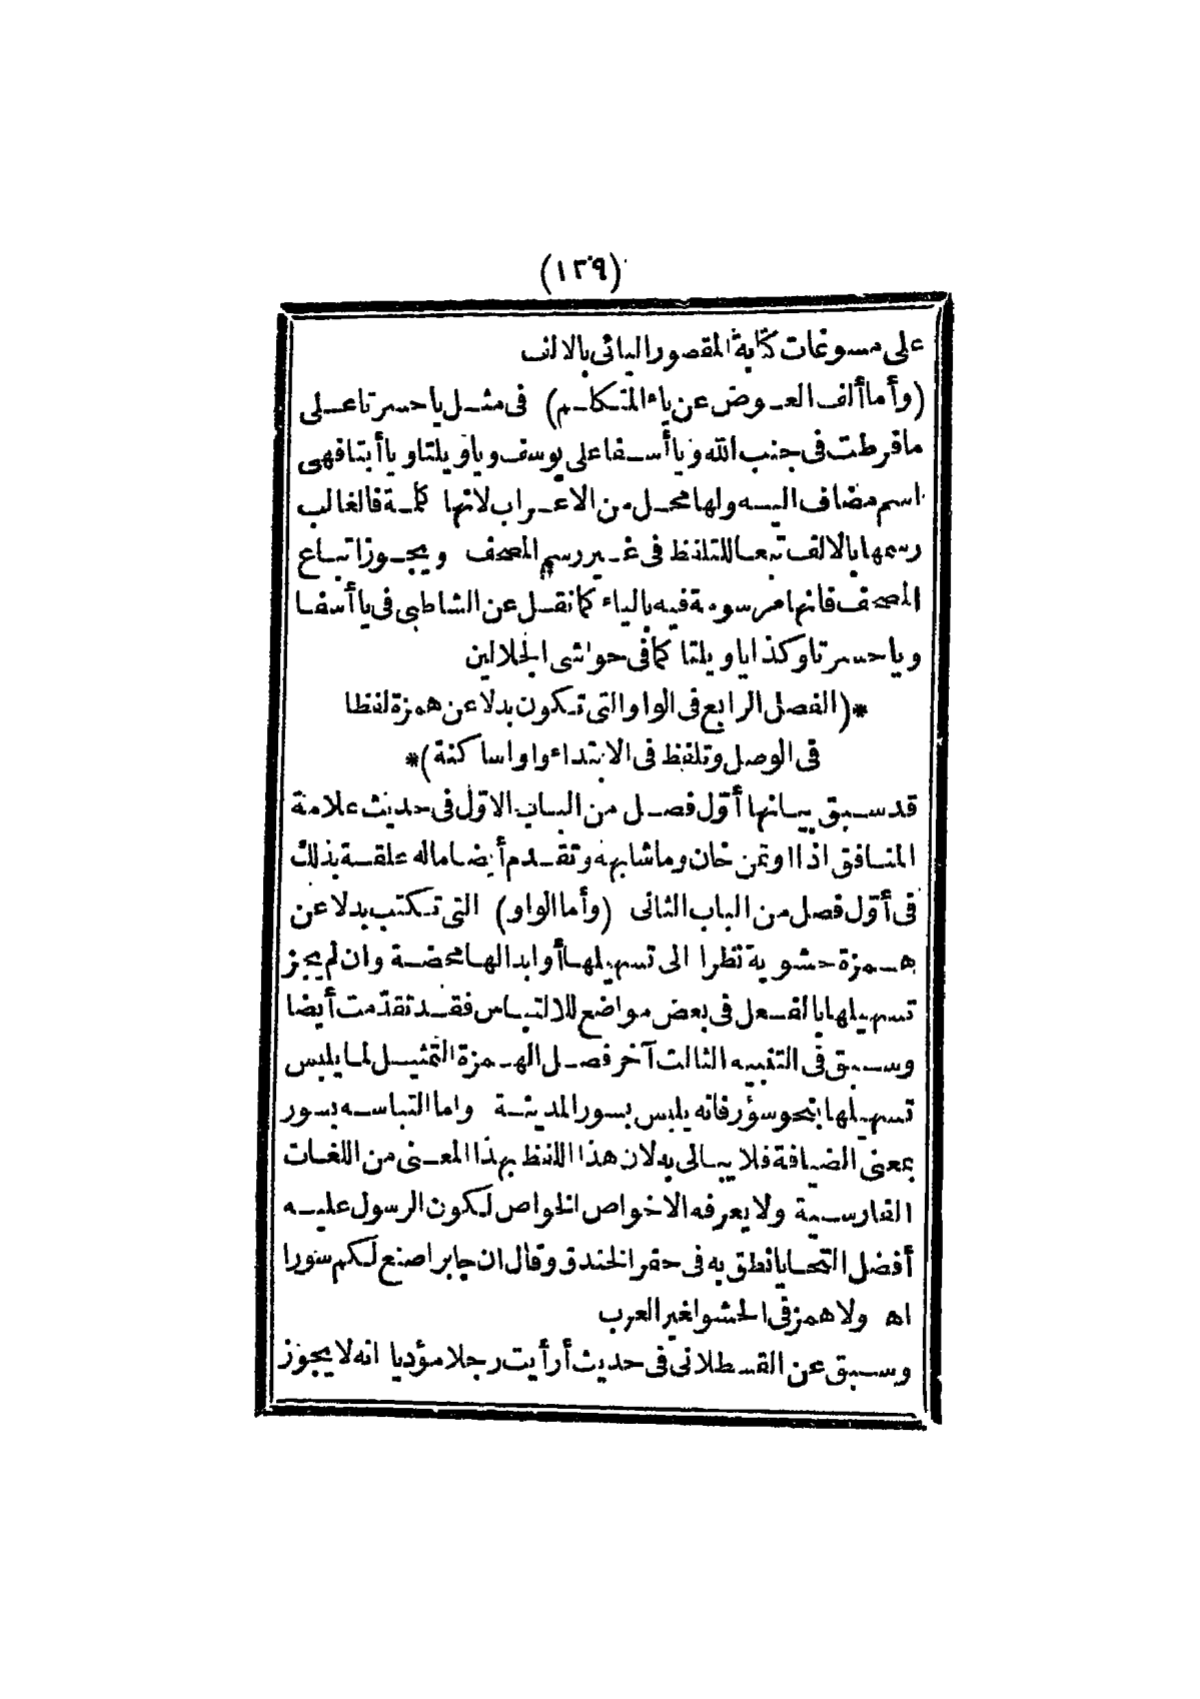 (١٣٩)
على مسوغات كتابة المقصور اليائى بالالف
(وأما ألف العوض عن ياء المتكلم) فى مثل يا حسرتا على
ما فرطت فى جنب الله ويا أسفا على يوسف ويا ويلتا ويا أبتا فهى
اسم مضاف اليه ولها محل من الاعراب لانها كلمة فالغالب
رسمها بالالف تبعا للتلفظ فى غير رسم المصحف ويجوز اتباع
المصحف فانها مرسومة فيه بالياء كما نقل عن الشاطبى فى يا أسفا
ويا حسرتا وكذا يا ويلتا كما فى حواشى الجلالين
*(الفصل الرابع فى الواو التى تكون بدلا عن همزة لفظا
فى الوصل وتلفظ فى الابتداء واوا ساكنة)*
قد سبق بيانها أوّل فصل من الباب الاوّل فى حديث علامة
المنافق اذا اوتمن خان وما شابهه وتقدم أيضا ماله علقة بذلك
فى أوّل فصل من الباب الثانى (وأما الواو) التى تكتب بدلا عن
همزة حشوية نظرا الى تسهيلها أو ابدالها محضة وان لم يجز
تسهيلها بالفعل فى بعض مواضع للالتباس فقد تقدّمت أيضا
وسبق فى التنبيه الثالث آخر فصل الهمزة التمثيل لما يلبس
تسهيلها بنحو سؤر فانه يلبس بسور المدينة واما التباسه بسور
بمعنى الضيافة فلا يبالى به لان هذا اللفظ بهذا المعنى من اللغات
الفارسية ولا يعرفه الا خواص الخواص لكون الرسول عليه
أفضل التحايا نطق به فى حفر الخندق وقال ان جابرا صنع لكم سورا
اه ولا همز فى الحشو لغير العرب
وسبق عن القسطلانى فى حديث أرأيت رجلا مؤديا انه لا يجوز